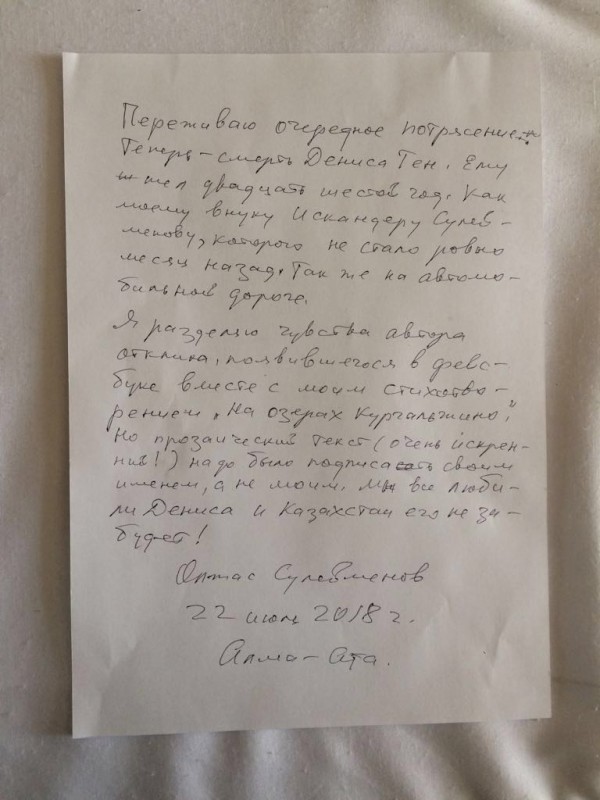 Переживаю очередное потрясение.
Теперь – смерть Дениса Тен. Ему
шел двадцать шестой год. Как
моему внуку Искандеру Сулей-
менову, которого не стало ровно
месяц назад. Так же на автомо-
бильной дороге.
Я разделяю чувства автора
отклика, появившегося в фейс-
буке вместе с моим стихотво-
рением „На озерах Кургальжино",
но прозаический текст (очень искрен-
ний!) надо было подписать своим
именем, а не моим. Мы все люби-
ли Дениса и Казахстан его не за-
будет!
Олжас Сулейменов
22 июля 2018 г.
Алма-Ата.